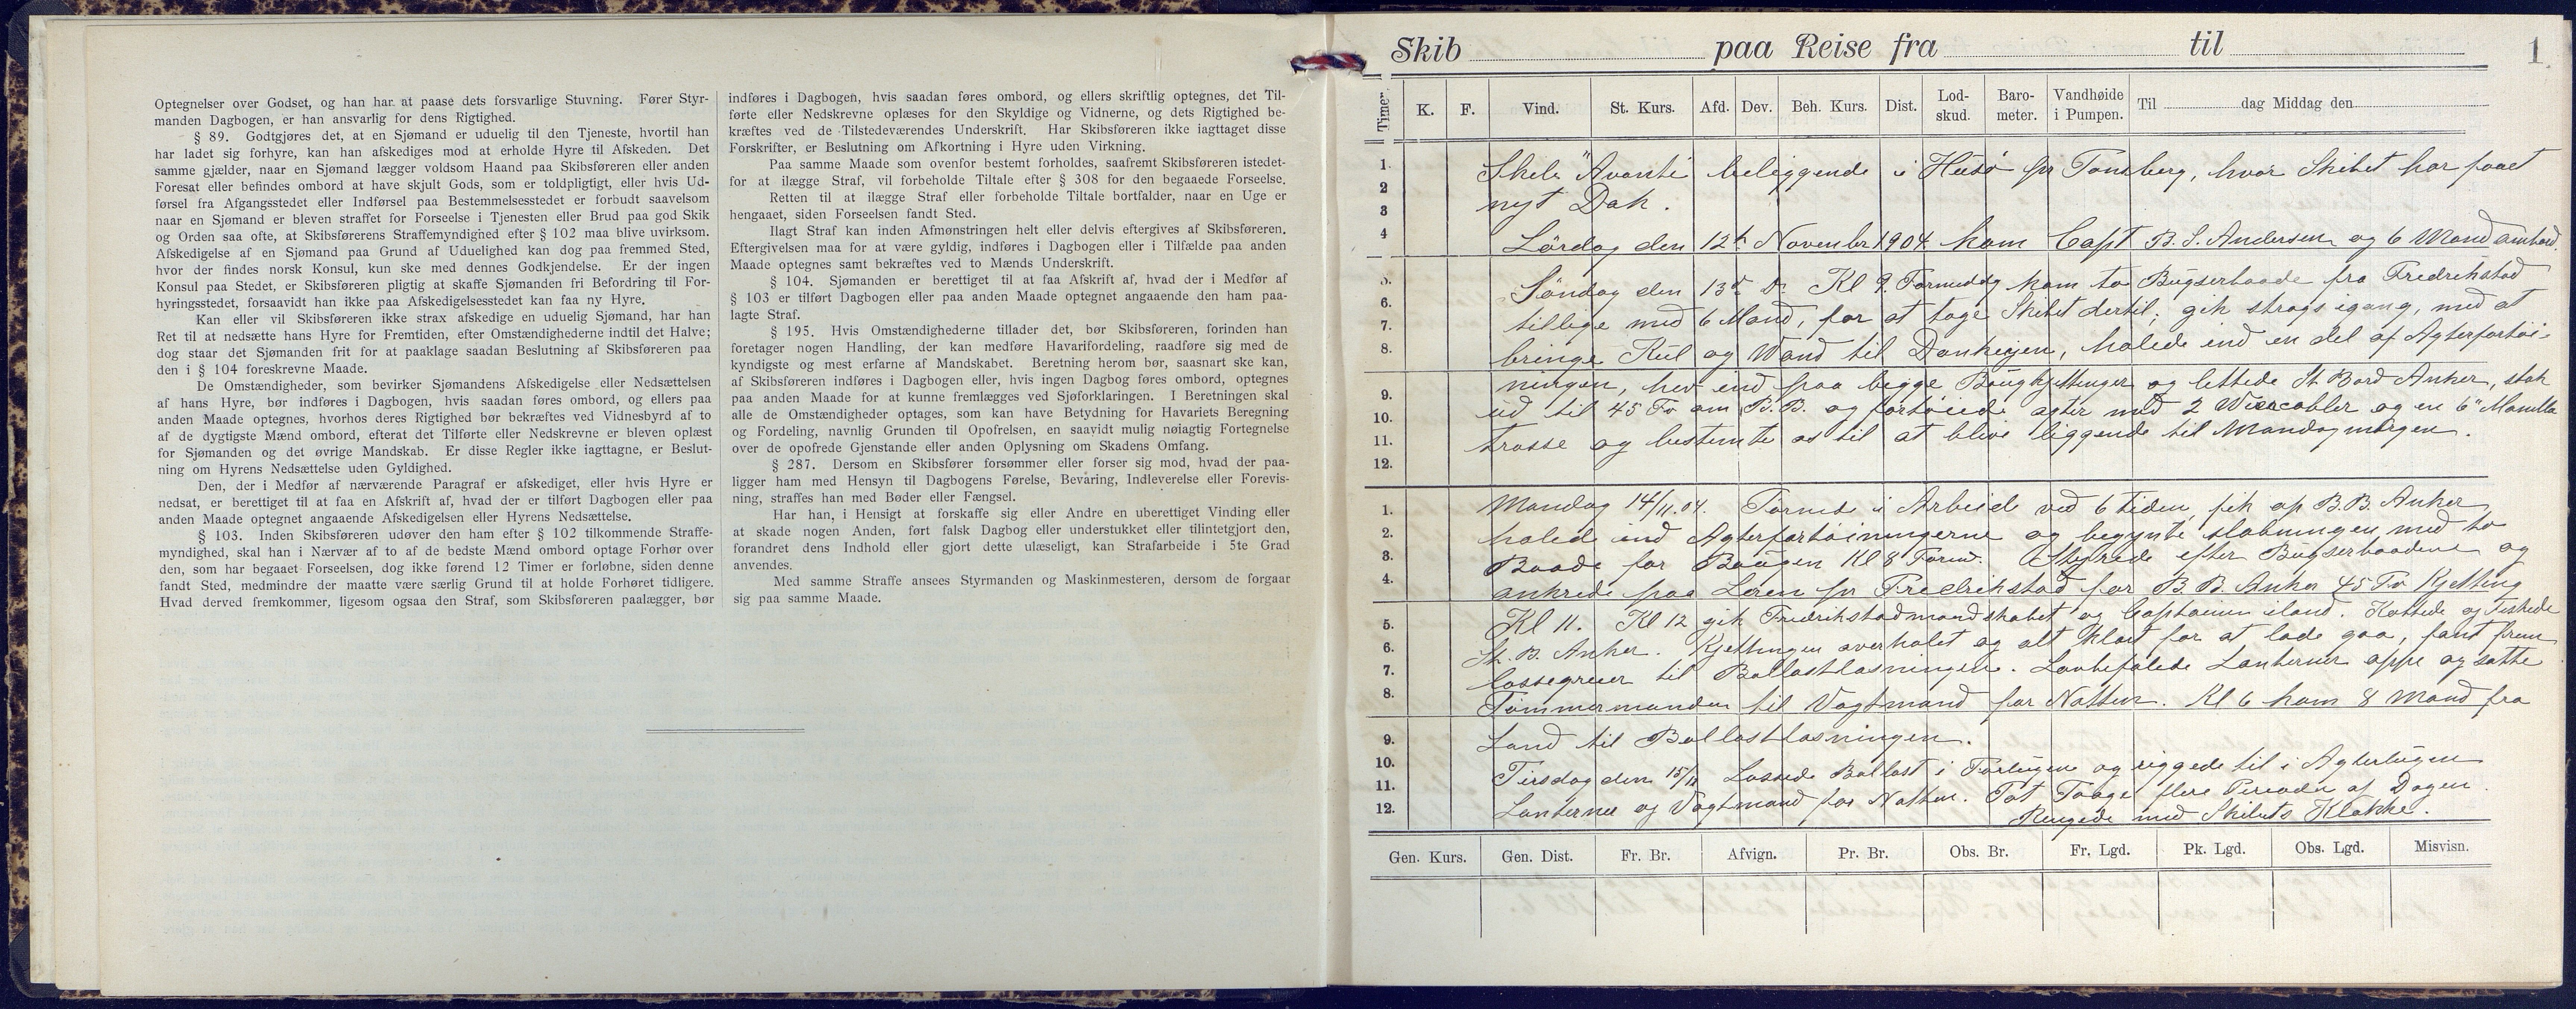 Optegnelser over Godset, og han har at paase dets forsvarlige Stuvning. Fører Styr-
manden Dagbogen, er han ansvarlig for dens Rigtighed.
§ 89. Godtgjøres det, at en Sjømand er uduelig til den Tjeneste, hvortil han
har ladet sig forhyre, kan han afskediges mod at erholde Hyre til Afskeden. Det
samme gjælder, naar en Sjømand lægger voldsom Haand paa Skibsføreren eller anden
Foresat eller befindes ombord at have skjult Gods, som er toldpligtigt, eller hvis Ud-
førsel fra Afgangsstedet eller Indførsel paa Bestemmelsesstedet er forbudt saavelsom
naar en Sjømand er bleven straffet for Forseelse i Tjenesten eller Brud paa god Skik
og Orden saa ofte, at Skibsførerens Straffemyndighed efter § 102 maa blive uvirksom.
Afskedigelse af en Sjømand paa Grund af Uduelighed kan dog paa fremmed Sted,
hvor der findes norsk Konsul, kun ske med dennes Godkjendelse. Er der ingen
Konsul paa Stedet, er Skibsføreren pligtig at skaffe Sjømanden fri Befordring til For-
hyringsstedet, forsaavidt han ikke paa Afskedigelsesstedet kan faa ny Hyre.
Kan eller vil Skibsføreren ikke strax afskedige en uduelig Sjømand, har han
Ret til at nedsætte hans Hyre for Fremtiden, efter Omstændighederne indtil det Halve;
dog staar det Sjømanden frit for at paaklage saadan Beslutning af Skibsføreren paa
den i § 104 foreskrevne Maade.
De Omstændigheder, som bevirker Sjømandens Afskedigelse eller Nedsættelsen
af hans Hyre, bør indføres i Dagbogen, hvis saadan føres ombord, og ellers paa
anden Maade optegnes, hvorhos deres Rigtighed bør bekræftes ved Vidnesbyrd af to
af de dygtigste Mænd ombord, efterat det Tilførte eller Nedskrevne er bleven oplæst
for Sjømanden og det øvrige Mandskab. Er disse Regler ikke iagttagne, er Beslut-
ning om Hyrens Nedsættelse uden Gyldighed.
Den, der i Medfør af nærværende Paragraf er afskediget, eller hvis Hyre er
nedsat, er berettiget til at faa en Afskrift af, hvad der er tilført Dagbogen eller paa
anden Maade optegnet angaaende Afskedigelsen eller Hyrens Nedsættelse.
§ 103. Inden Skibsføreren udøver den ham efter § 102 tilkommende Straffe-
myndighed, skal han i Nærvær af to af de bedste Mænd ombord optage Forhør over
den, som har begaaet Forseelsen, dog ikke førend 12 Timer er forløbne, siden denne
fandt Sted, medmindre der maatte være særlig Grund til at holde Forhøret tidligere.
Hvad derved fremkommer, ligesom ogsaa den Straf, som Skibsføreren paalægger, bør
indføres i Dagbogen, hvis saadan føres ombord, og ellers skriftlig optegnes, det Til-
førte eller Nedskrevne oplæses for den Skyldige og Vidnerne, og dets Rigtighed be-
kræftes ved de Tilstedeværendes Underskrift. Har Skibsføreren ikke iagttaget disse
Forskrifter, er Beslutning om Afkortning i Hyre uden Virkning.
Paa samme Maade som ovenfor bestemt forholdes, saafremt Skibsføreren istedet-
for at ilægge Straf, vil forbeholde Tiltale efter § 308 for den begaaede Forseelse.
Retten til at ilægge Straf eller forbeholde Tiltale bortfalder, naar en Uge er
hengaaet, siden Forseelsen fandt Sted.
Ilagt Straf kan inden Afmønstringen helt eller delvis eftergives af Skibsføreren.
Eftergivelsen maa for at være gyldig, indføres i Dagbogen eller i Tilfælde paa anden
Maade optegnes samt bekræftes ved to Mænds Underskrift.
§ 104. Sjømanden er berettiget til at faa Afskrift af, hvad der i Medfør af
§ 103 er tilført Dagbogen eller paa anden Maade optegnet angaaende den ham paa-
lagte Straf.
§ 195. Hvis Omstændighederne tillader det, bør Skibsføreren, forinden han
foretager nogen Handling, der kan medføre Havarifordeling, raadføre sig med de
kyndigste og mest erfarne af Mandskabet. Beretning herom bør, saasnart ske kan,
af Skibsføreren indføres i Dagbogen eller, hvis ingen Dagbog føres ombord, optegnes
paa anden Maade for at kunne fremlægges ved Sjøforklaringen. I Beretningen skal
alle de Omstændigheder optages, som kan have Betydning for Havariets Beregning
og Fordeling, navnlig Grunden til Opofrelsen, en saavidt mulig nøiagtig Fortegnelse
over de opofrede Gjenstande eller anden Oplysning om Skadens Omfang.
§ 287. Dersom en Skibsfører forsømmer eller forser sig mod, hvad der paa-
ligger ham med Hensyn til Dagbogens Førelse, Bevaring, Indleverelse eller Forevis-
ning, straffes han med Bøder eller Fængsel.
Har han, i Hensigt at forskaffe sig eller Andre en uberettiget Vinding eller
at skade nogen Anden, ført falsk Dagbog eller understukket eller tilintetgjort den,
forandret dens Indhold eller gjort dette ulæseligt, kan Strafarbeide i 5te Grad
anvendes.
Med samme Straffe ansees Styrmanden og Maskinmesteren, dersom de forgaar
sig paa samme Maade.
Skib paa Reise fra til 1
Timer. K. F. Vind. St. Kurs. Afd. Dev. Beh. Kurs. Dist. Lod-skud. Baro-meter. Vandhøide i Pumpen. Til dag Middag den
1. Skib "Avanti" beliggende i Husø pr Tønsberg, hvor Skibet har faaet
2 nyt Dæk.
3
4 Lørdag den 12te November 1904 kom Capt B. S. Andersen og 6 Mand ombord.
5. Søndag den 13de Kl 9. Formiddag kom to Bugserbaade fra Fredrikstad
6. tillige med 6 Mand, for at tage Skibet dertil; gik strags igang, med at
7. bringe Kul og Vand til Donkeyen, halede ind en del af Agterfortøi-
8. ningen, hev ind paa begge Bougkjettinger og lettede St Bord Anker, stak
9. ud til 45 Fv om B.B. og fortøiede agter med 2 Wirecabler og en 6" Manilla
10. trosse og bestemte os til at blive liggende til Mandagmorgen.
11.
12.
1. Mandag 14/11.04. Tørnede i Arbeide ved 6 tiden, fik op B.B. Anker
2. halede ind Agterfortøiningerne og begynte slæbningen med to
3. Baade for Bougen Kl 8 Form. Styrede efter Bugserbaadene og
4. ankrede paa Leren pr Fredrikstad for B. B. Anker 45 Fv Kjetting
5. Kl 11. Kl 12 gik Fredrikstadmandskabet og Captainen iland. Kattede og Fiskede
6. St. B. Anker. Kjettingen overhalet og alt klart for at lade gaa, fant frem
7. lossegreier til Ballastlosningen. Lovbefalede Lanterner oppe og satte
8. Tømmermanden til Vagtmand for Natten. Kl 6 kom 8 Mand fra
9. Land til Ballastlosningen.
10. Tirsdag den 15/11 Lossede Ballast i Forlugen og riggede til i Agterlugen
11. Lanterner og Vagtmand for Natten. Tæt Taage flere Perioder af Dagen.
12. Ringede med Skibets Klokke.
Gen. Kurs. Gen. Dist. Fr. Br. Afvign. Pr. Br. Obs. Br. Fr. Lgd. Pk. Lgd. Obs. Lgd. Misvisn.